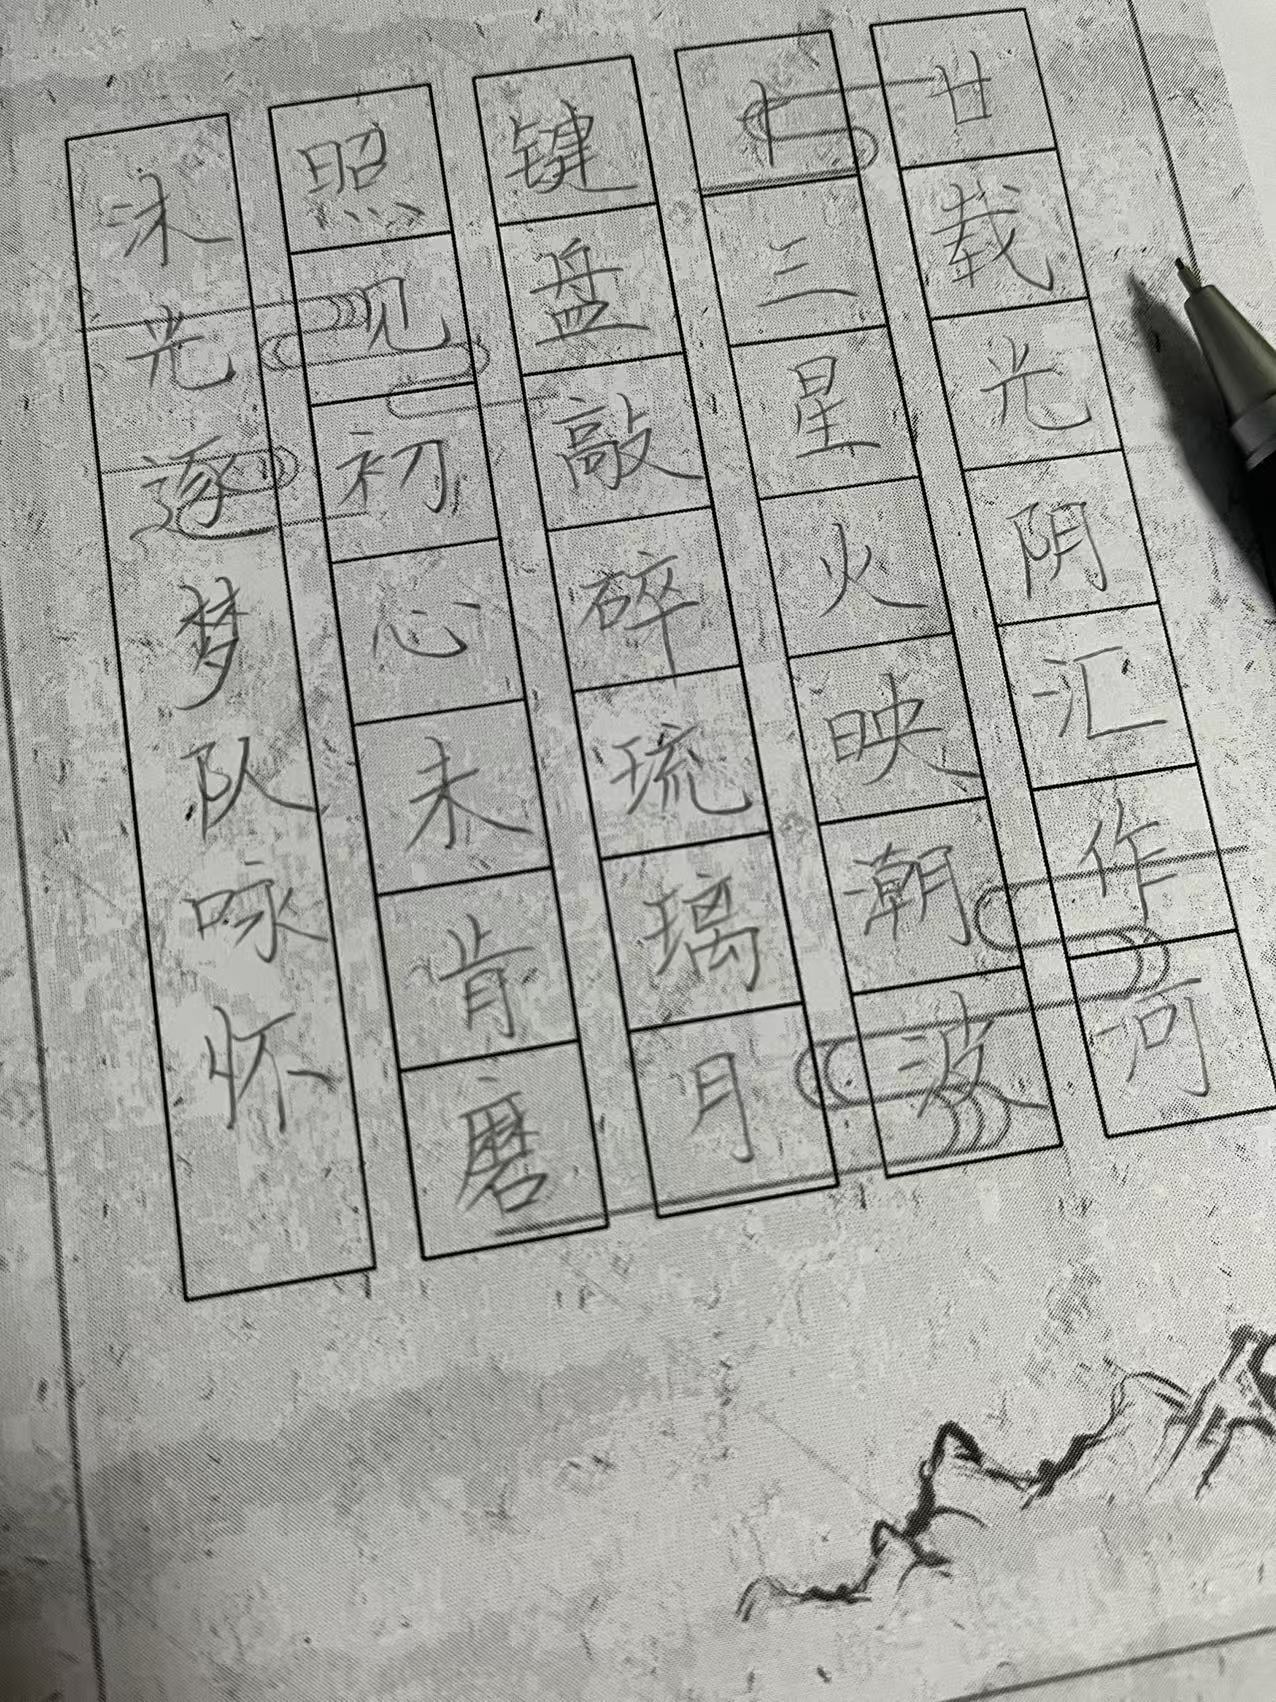 廿载光阴汇作河
十三星火映潮波
键盘敲碎琉璃月
照见初心未肯磨
沐光逐梦队咏怀